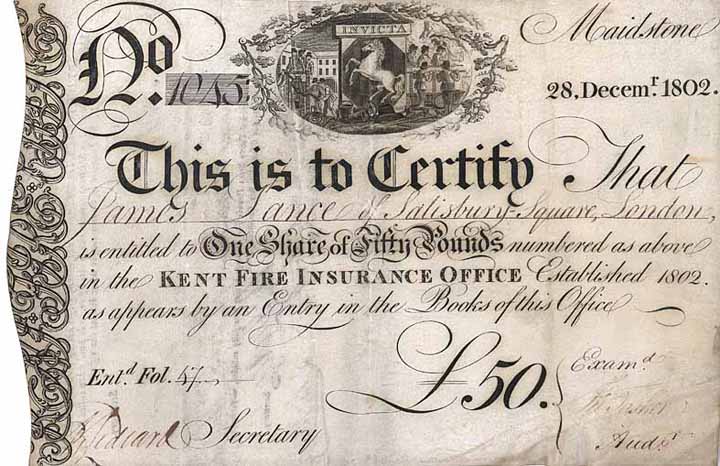 INVICTA
Maidstone
No. 1045
28, Decemr. 1802.
This is to Certify That
James Vance of Salisbury-Square, London,
is entitled to One Share of Fifty Pounds numbered as above
in the KENT FIRE INSURANCE OFFICE Established 1802.
as appears by an Entry in the Books of this Office
Entd. Fol. 47
£50.
Examd.
Secretary
Audr.